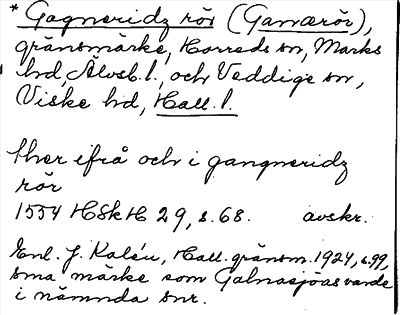 * Gagneridz rör (Gamærör),
gränsmärke, Horreds sn, Marks
hd, Älvsb. l., och Veddige sn,
Viske hd, Hall. l.
ther ifrå och i gangneridz
rör
1554 HSkH 29, s. 68. avskr.
Enl. J. Kalén, Hall. gränsm. 1924, s. 99,
sma märke som Galnasjöasvarde
i nämnda snr.